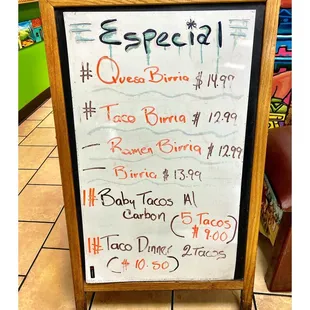 Especial
# Quesa Birria $14.99
# Taco Birria $12.99
- Ramen Birria $12.99
- Birria $13.99
1# Baby Tacos Al
Carbon (5 Tacos
$9.00)
1# Taco Dinner 2 Tacos
($10.50)